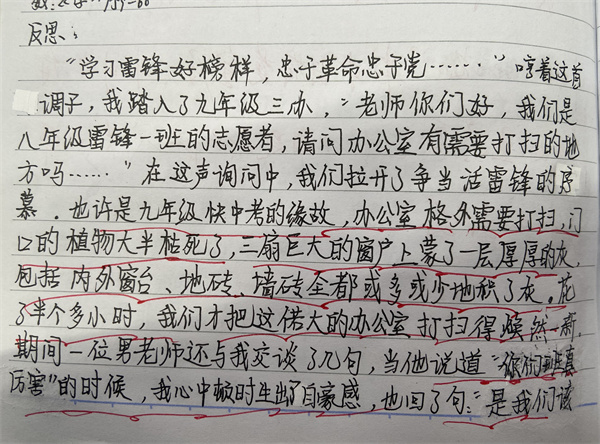 反思：
“学习雷锋好榜样，忠于革命忠于党……”哼着这首
调子，我踏入了九年级三办，“老师你们好，我们是
八年级雷锋一班的志愿者，请问办公室有需要打扫的地
方吗……”在这声询问中，我们拉开了争当活雷锋的序
幕。也许是九年级快中考的缘故，办公室格外需要打扫，门
口的植物大半枯死了，三扇巨大的窗户上蒙了一层厚厚的灰，
包括内外窗台、地砖、墙砖全都或多或少地积了灰。花
了半个多小时，我们才把这偌大的办公室打扫得焕然一新，
期间一位男老师还与我交谈了几句，当他说道“你们班真
厉害”的时候，我心中顿时生出了自豪感，也回了句：“是我们该